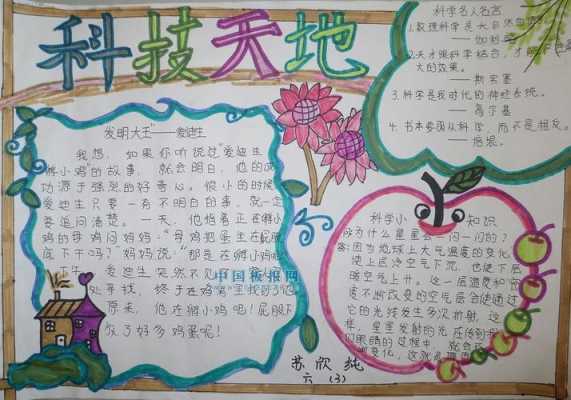 科技天地
发明大王"——爱迪生
我想，如果你听说过"爱迪生
孵小鸡"的故事，就会明白，他的成
功源于强烈的好奇心。很小的时候
爱迪生只要一有不明白的事，就一定
要追问清楚。一天，他指着正在孵小
鸡的母鸡问妈妈："母鸡把蛋坐在屁股
底下干吗？"妈妈说："那是在孵小鸡
爱迪生突然不见
处寻找，终于在鸡窝里找到了他
原来，他在孵小鸡呢！屁股下
放了好多鸡蛋呢！
中国板报网
科学名人名言
1.数理科学是大自然
——伽利略
2.天才跟科学结合，才
大的效果。
——斯宾塞
3.科学是我时代的神经系统。
——高尔基
4.书本要跟从科学，而不是相反。
——培根。
科学小知识
问为什么星星会一闪一闪的？
答：因为地球上大气温度的变化
使上层冷空气下沉，也使下层
暖空气上升。这一层温度和密
度不断改变的空气层会使通过
它的光线发生多次折射，这
样，星星发射的光在传到
们眼睛的过程中，就会
变化，这就
苏欣纯
六（3）